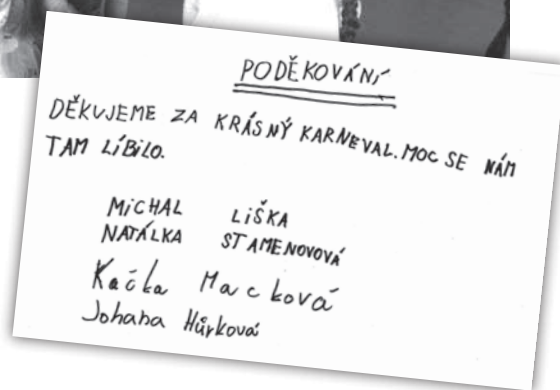 PODĚKOVÁNÍ
DĚKUJEME ZA KRÁSNÝ KARNEVAL. MOC SE NÁM
TAM LÍBILO.
MICHAL LIŠKA
NATÁLKA STAMENOVOVÁ
Kačka Macková
Johana Hůrková